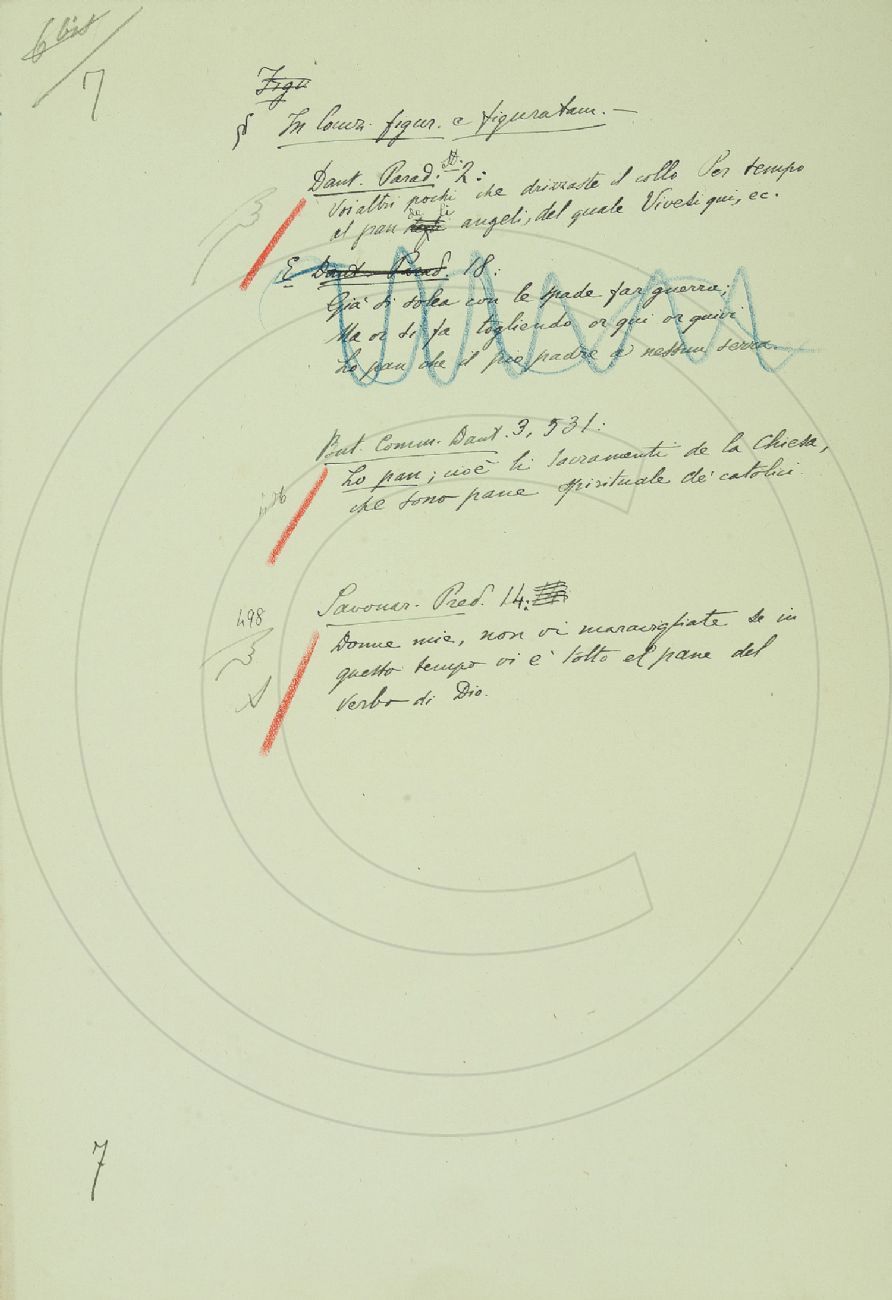 6 bis
7
Figu
§ In Comz. figur. e figuratam. —
Dant. Parad. 2:
Voi altri pochi che drizzaste il collo Per tempo
al pan de li angeli, del quale Vivesi qui, ec.
E Dant. Parad. 18:
Già si solea con le spade far guerra;
Ma or si fa togliendo or qui or quivi
Lo pan che il pio padre a nessun serra.
But. Comm. Dant. 3, 531:
Lo pan; cioè li Sacramenti de la Chiesa,
che sono pane spirituale de' catolici
498
Savonar. Pred. 14:
Donne mie, non vi maravigliate se in
questo tempo vi è tolto el pane del
verbo di Dio.
7